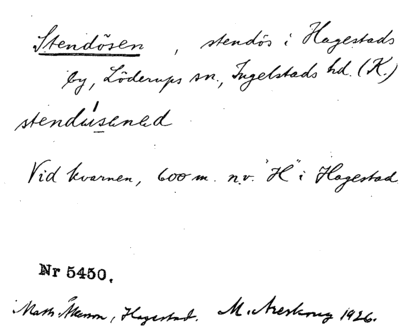 Stendösen, stendös i Hagestads
by, Löderups sn., Ingelstads hd. (K.)
stendusened
Vid kvarnen, 600 m. n.v. "H" i Hagestad
Nr 5450.
Hagestad. M. Areskoug 1926.